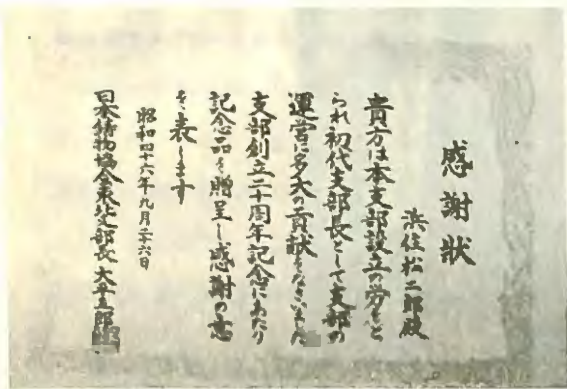 感謝状
浜住松二郎殿
貴方は本支部設立の労をと
られ初代支部長として支部の
運営に多大の貢献をなさいました
支部創立二十周年記念にあたり
記念品を贈呈し感謝の意
を表します
昭和四十六年九月二十六日
日本鋳物協会東北支部長 大平五郎